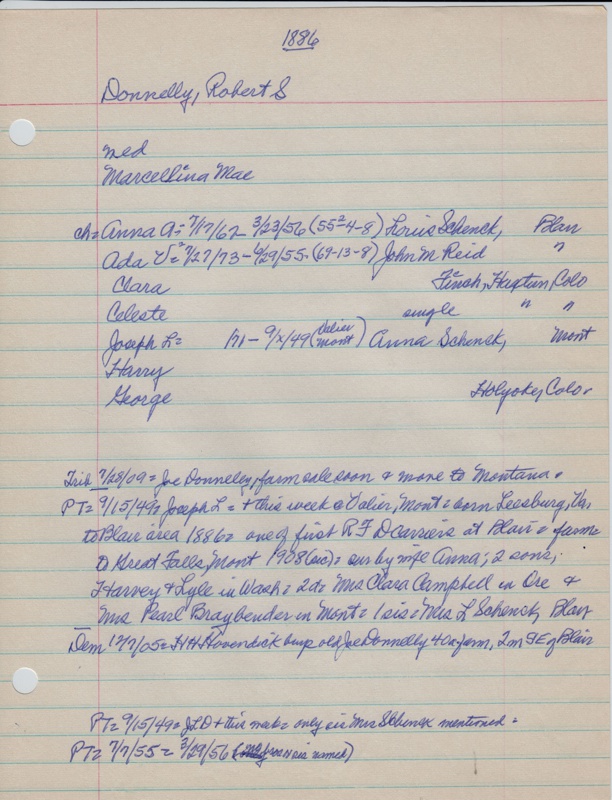 1886
Donnelly, Robert S
med
Marcellina Mae
ch= Anna A= 7/17/62- 3/23/56 (55²4-8) Louis Schenck, Blair
Ada V= 7/27/73 - 6/29/55- (69-13-8) John M Reid "
Clara Finch, Haxtun, Colo
Celeste single " "
Joseph L= /71 - 9/x/49 (Valier Mont) Anna Schenck, Mont
Harry
George Holyoke, Colo.
Trib 7/28/09 = Joe Donnelly, farm sale soon & move to Montana.
PT= 9/15/49= Joseph L = + this week @ Valier, Mont = born Leesburg, Va,
to Blair area 1886= one of first RFD carriers at Blair = farm
to Great Falls, Mont 1908 (sic) = sur by wife Anna; 2 sons,
Harvey & Lyle in Wash = 2d= Mrs Clara Campbell in Ore &
Mrs Pearl Braybender in Mont = 1 sis = Mrs L Schenck, Blair
Dem 12/7/05= HH Hovendick buys old Joe Donnelly farm, 2 m SE of Blair
PT= 9/15/49= JLD + this week = only sis Mrs Schenck mentioned =
PT= 7/7/55 = 3/29/56 (sis named)